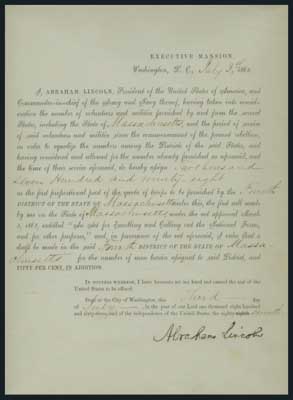 EXECUTIVE MANSION,
Washington, D. C., July 3, 1863
I, ABRAHAM LINCOLN, President of the United States of America, and
Commander-in-chief of the Army and Navy thereof, having taken into consid-
eration the number of volunteers and militia furnished by and from the several
States, including the State of Massachusetts, and the period of service
of said volunteers and militia since the commencement of the present rebellion,
in order to equalize the numbers among the Districts of the said States, and
having considered and allowed for the number already furnished as aforesaid, and
the time of their service aforesaid, do hereby assign Two thousand
and ninety eight
as the first proportional part of the quota of troops to be furnished by the Fourth
DISTRICT OF THE STATE OF Massachusetts under this, the first call made
by me on the State of Massachusetts, under the act approved March
3, 1863, entitled "An Act for Enrolling and Calling out the National Forces,
and for other purposes," and, in pursuance of the act aforesaid, I order that a
draft be made in the said Fourth DISTRICT OF THE STATE OF Massa
chusetts for the number of men herein assigned to said District, and
FIFTY PER CENT. IN ADDITION.
IN WITNESS WHEREOF, I have hereunto set my hand and caused the seal of the
United States to be affixed.
Done at the City of Washington, this Third day
of July, in the year of our Lord one thousand eight hundred
and sixty-three, and of the independence of the United States, the eighty-seventh
Abraham Lincoln